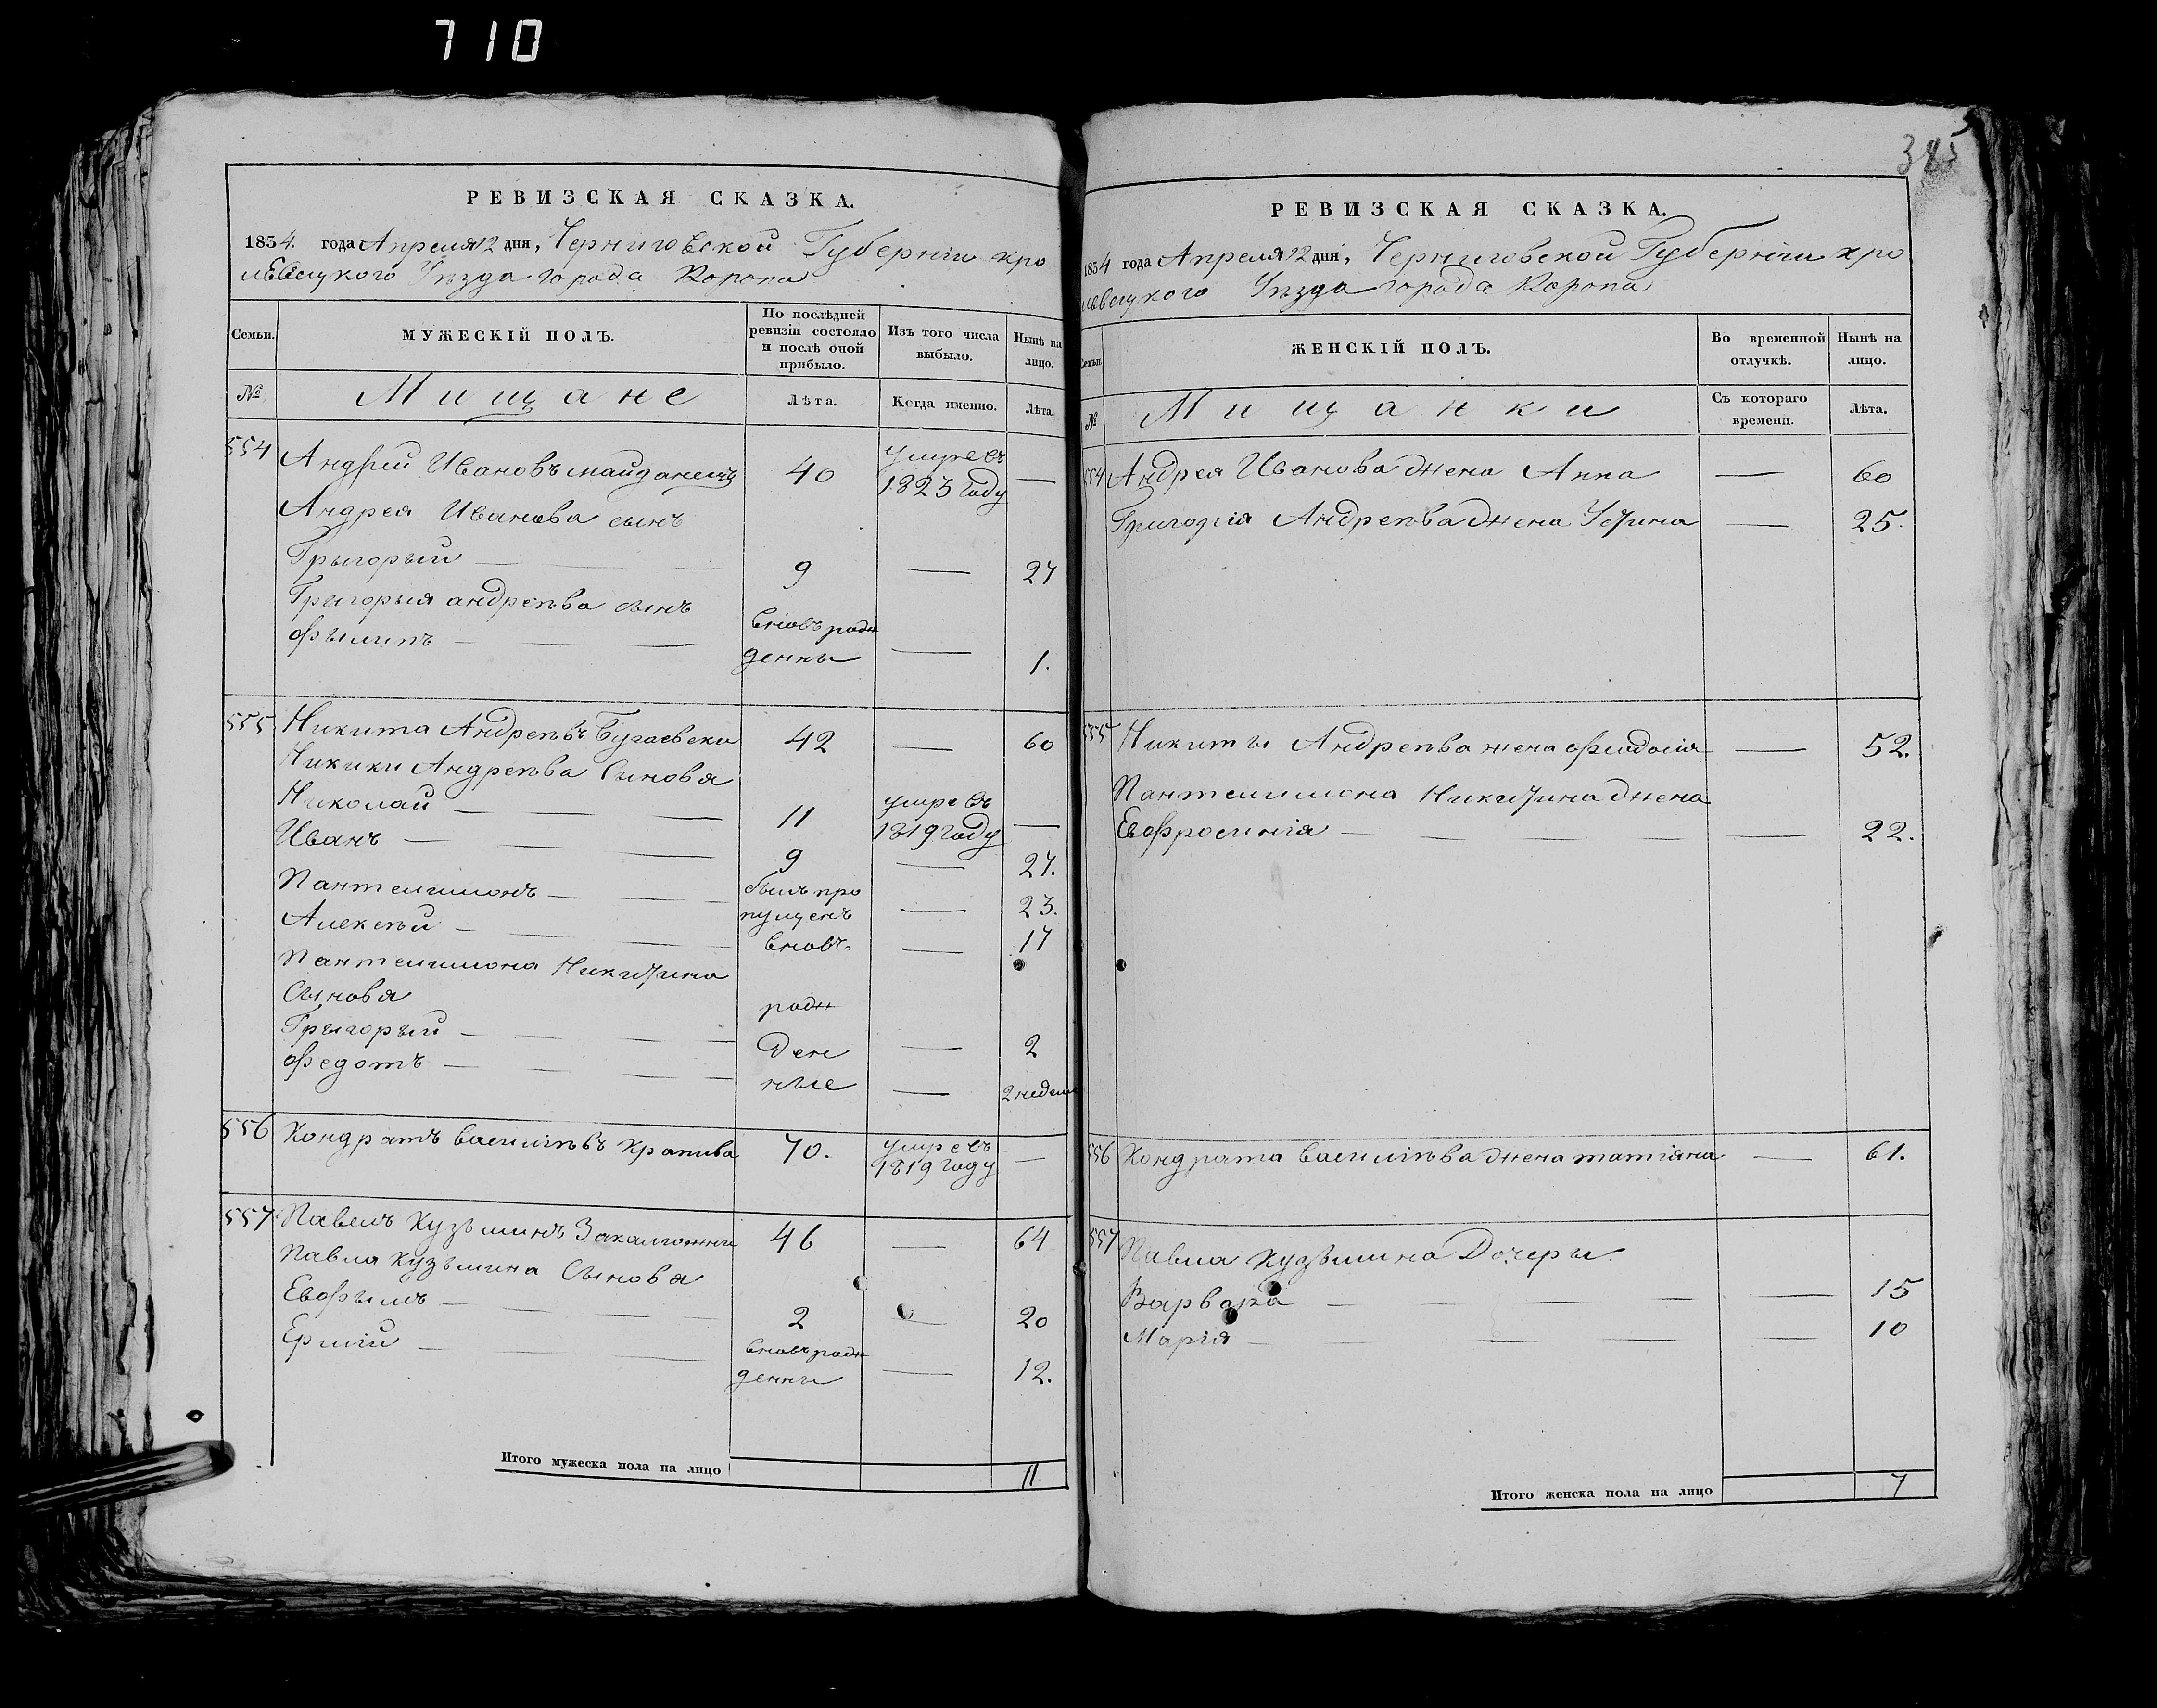 710
385
РЕВИЗСКАЯ СКАЗКА.
1834. года Апреля 12 дня, Черниговской Губернiи кро
левецкого Уезда города Коропа
Семьи.
МУЖЕСКІЙ ПОЛЪ.
По послѣдней ревизіи состояло и послѣ оной прибыло.
Изъ того числа выбыло.
Нынѣ на лицо.
№
Мищане
Лѣта.
Когда именно.
Лѣта.
554 Андрей Ивановъ майданецъ 40 умре въ 1823 году —
Андрея Иванова сынъ
Грыгорый — 9 — 27
Григорыя андреѣва сынъ
Фылипъ — вновъ рож денны — 1.
555 Никита Андреѣвъ 42 — 60
Никики Андреѣва Сыновя
Николай — 11 умре въ 1819 году —
Иванъ — 9 — 27.
Пантелимонъ — былъ про пущенъ — 23.
Алексѣй — вновъ — 17
Пантелимона Никитина
Сыновя рож
Грыгорый — ден — 2
Федотъ — ные — 2 недели
556 Кондратъ Василіѣвъ Кропива 70. умре въ 1819 году —
557 Павелъ Кузьминъ 46 — 64
Павла Кузьмина Сыновя
Евфымъ — 2 — 20
Ермій — вновъ рож денны — 12.
Итого мужеска пола на лицо 11
РЕВИЗСКАЯ СКАЗКА.
1834 года Апреля 12 дня, Черниговской Губернiи кро
левецкого Уезда города Коропа
Семьи.
ЖЕНСКІЙ ПОЛЪ.
Во временной отлучкѣ.
Нынѣ на лицо.
№
Мищанки
Съ котораго времени.
Лѣта.
554 Андрея Иванова жена Анна — 60
Григорія Андреѣва жена — 25.
555 Никиты Андреѣва жена Феодосія — 52.
Пантелимона Никитина жена
Евфросинія — 22.
556 Кондрата Василіѣва жена татіяна — 61.
557 Павла Кузьмина Дочеры
Варвара — 15
Марія — 10
Итого женска пола на лицо 7